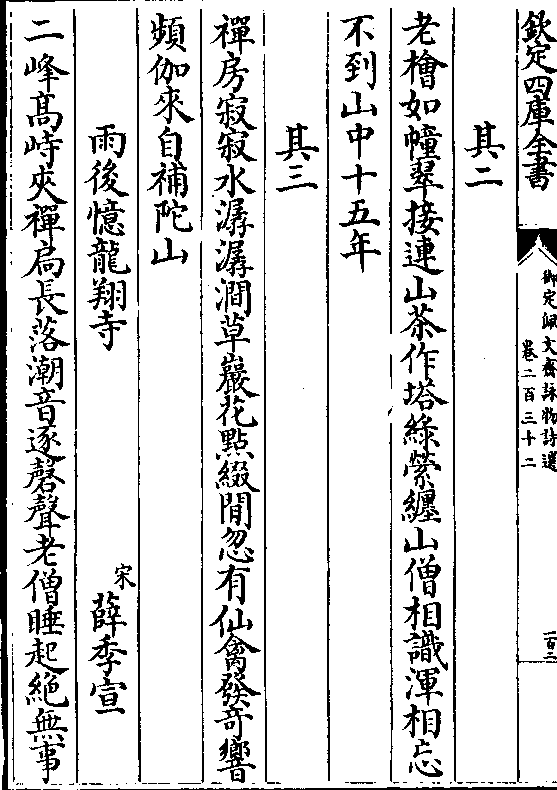 欽定四庫全書
御定佩文齋詠物詩選
卷二百三十二
一百二
其二
老檜如幢翠接連山茶作塔綠縈纏山僧相識渾相忘
不到山中十五年
其三
禪房寂寂水潺潺澗草巖花點綴閒忽有仙禽發奇響
頻伽來自補陀山
雨後憶龍翔寺
宋薛季宣
二峰髙峙夾禪扃長落潮音逐磬聲老僧睡起絶無事